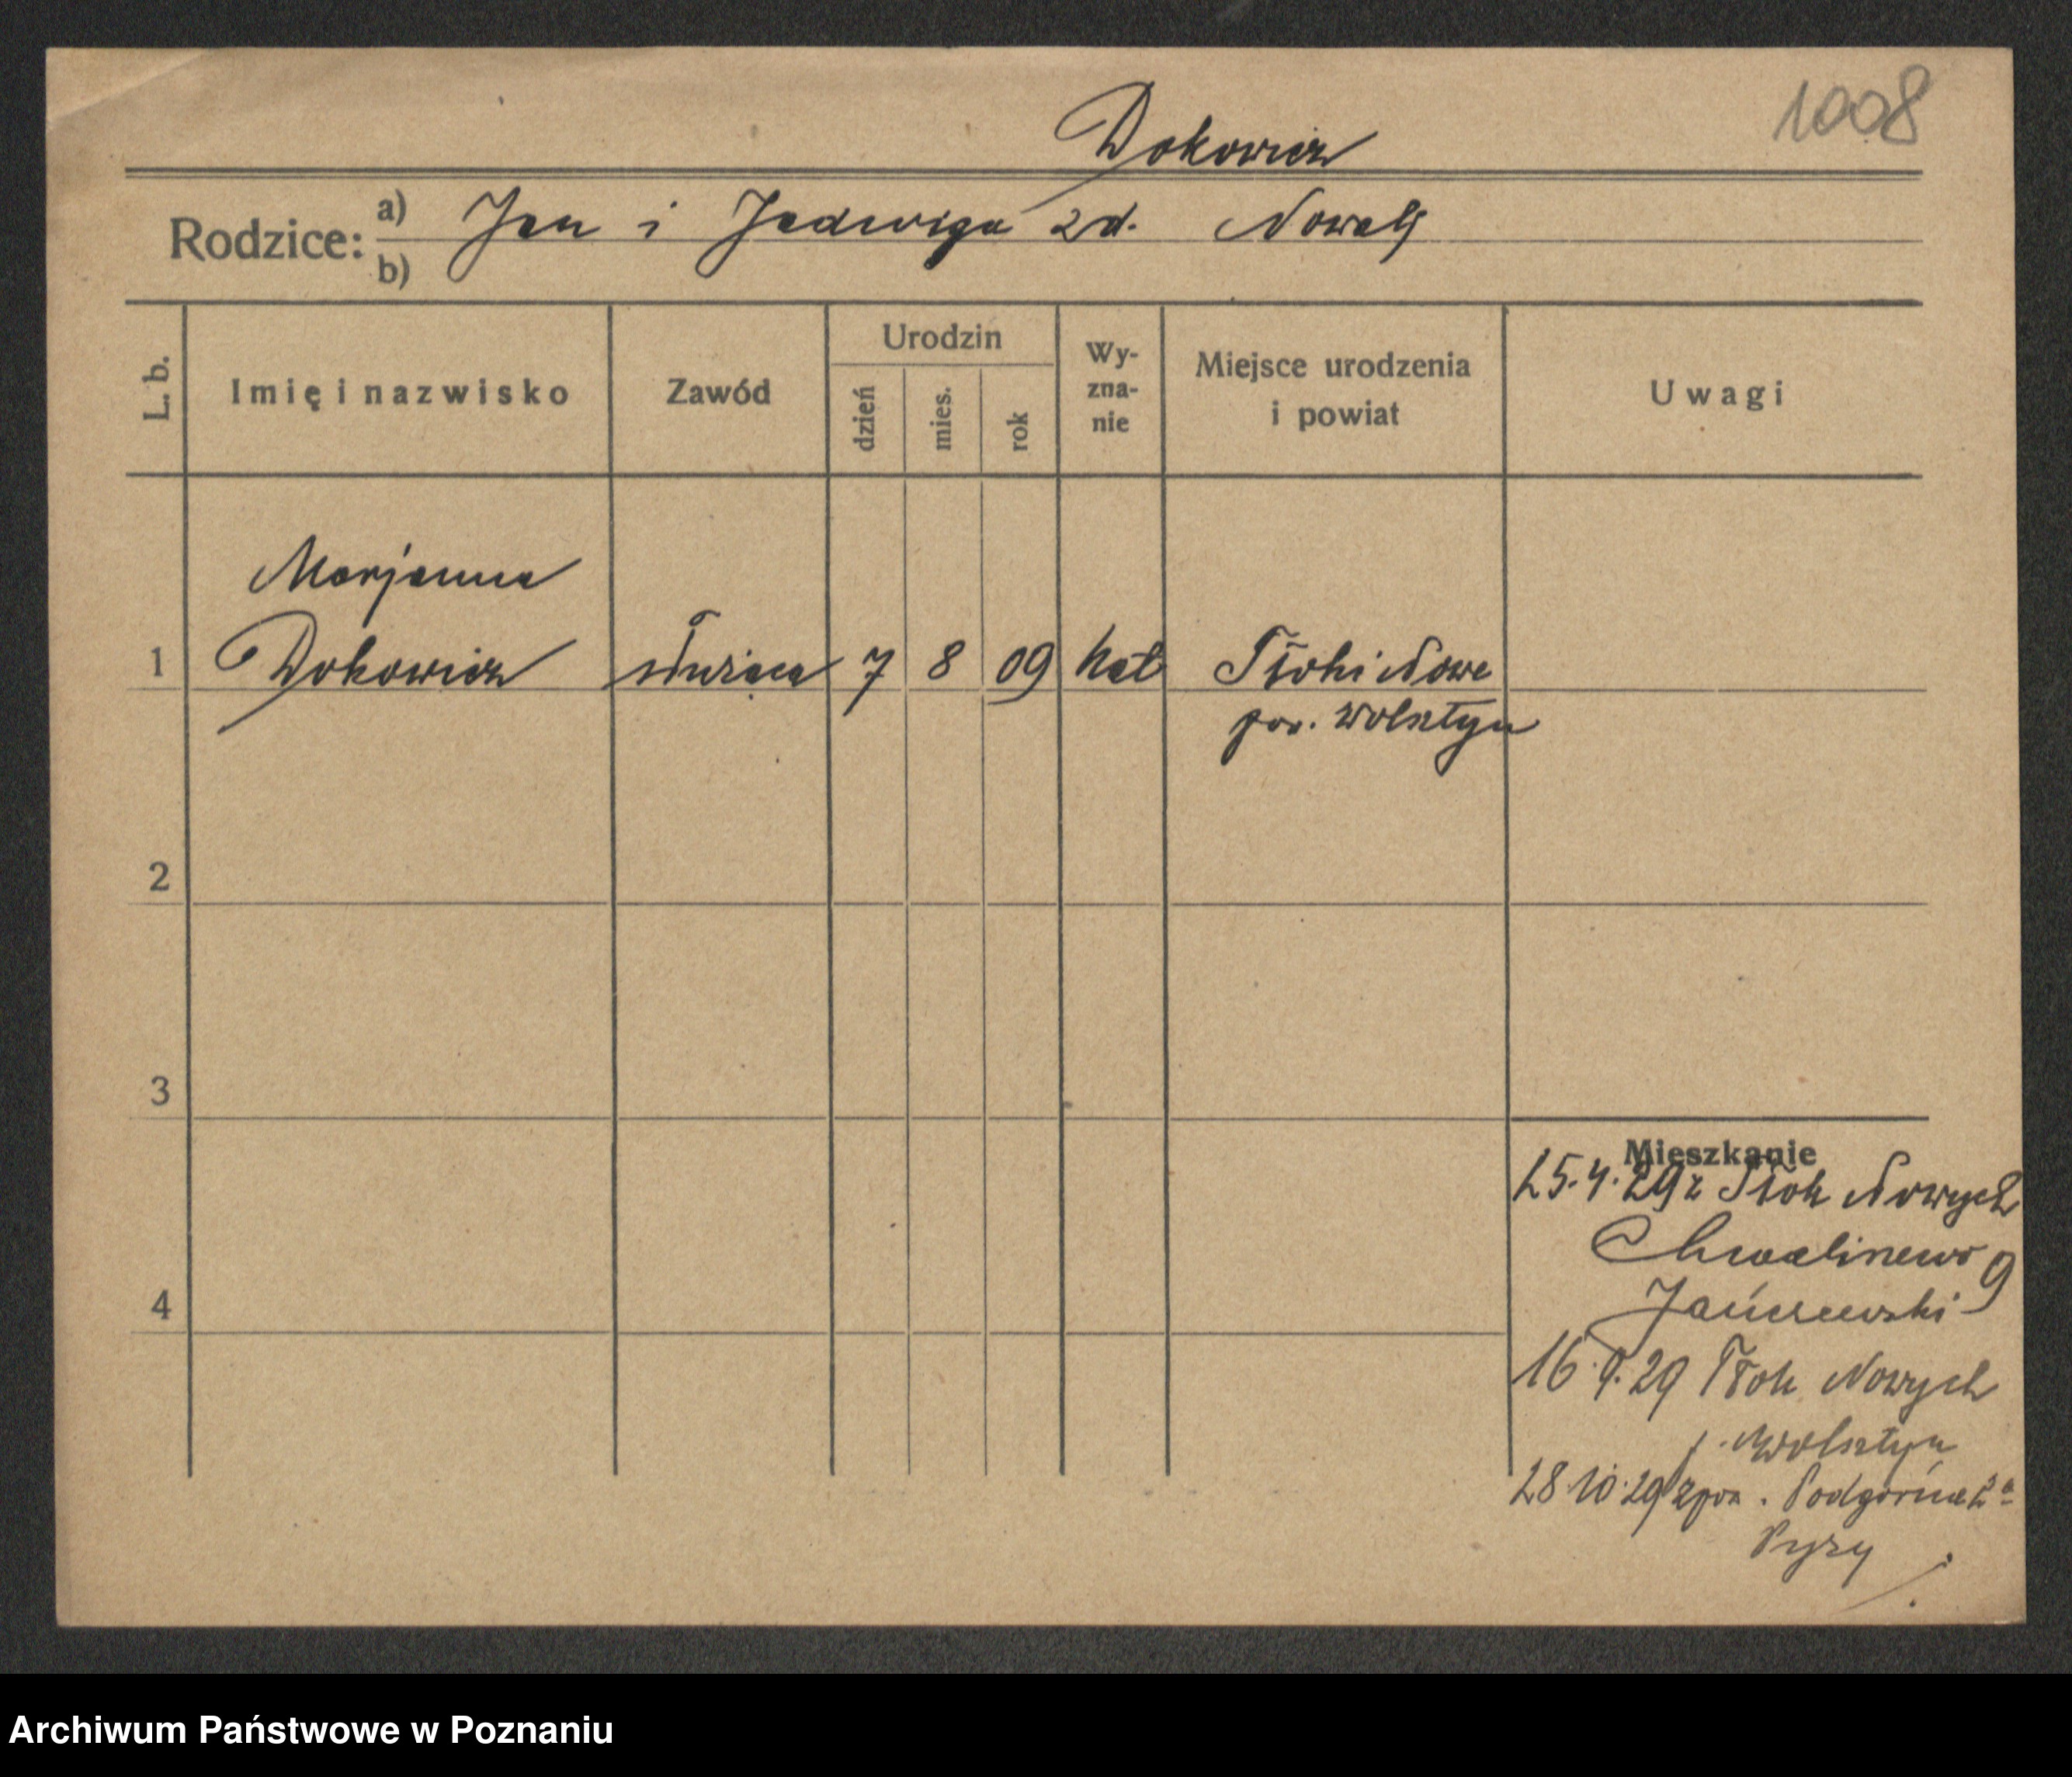 1008
Dokowicz
Rodzice: a) Jan i Jadwiga zd. Nowak
b)
L. b.
Imię i nazwisko
Zawód
Urodzin
dzień
mies.
rok
Wy-
zna-
nie
Miejsce urodzenia
i powiat
Uwagi
Marjanna
1 Dokowicz służąca 7 8 09 kat Tłoki Nowe
pow. Wolsztyn
2
3
4
Mieszkanie
25.4.29 z Tłok Nowych
Chwalinewo 9
Jańczewski
16.9.29 Tłok Nowych
p. Wolsztyn
28.10.29 z pow. Podgórna 2a
Pyzy
Archiwum Państwowe w Poznaniu